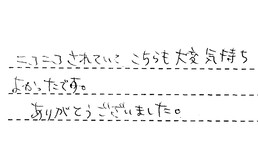 ニコニコされていて こちらも大変気持ち
よかったです。
ありがとうございました。